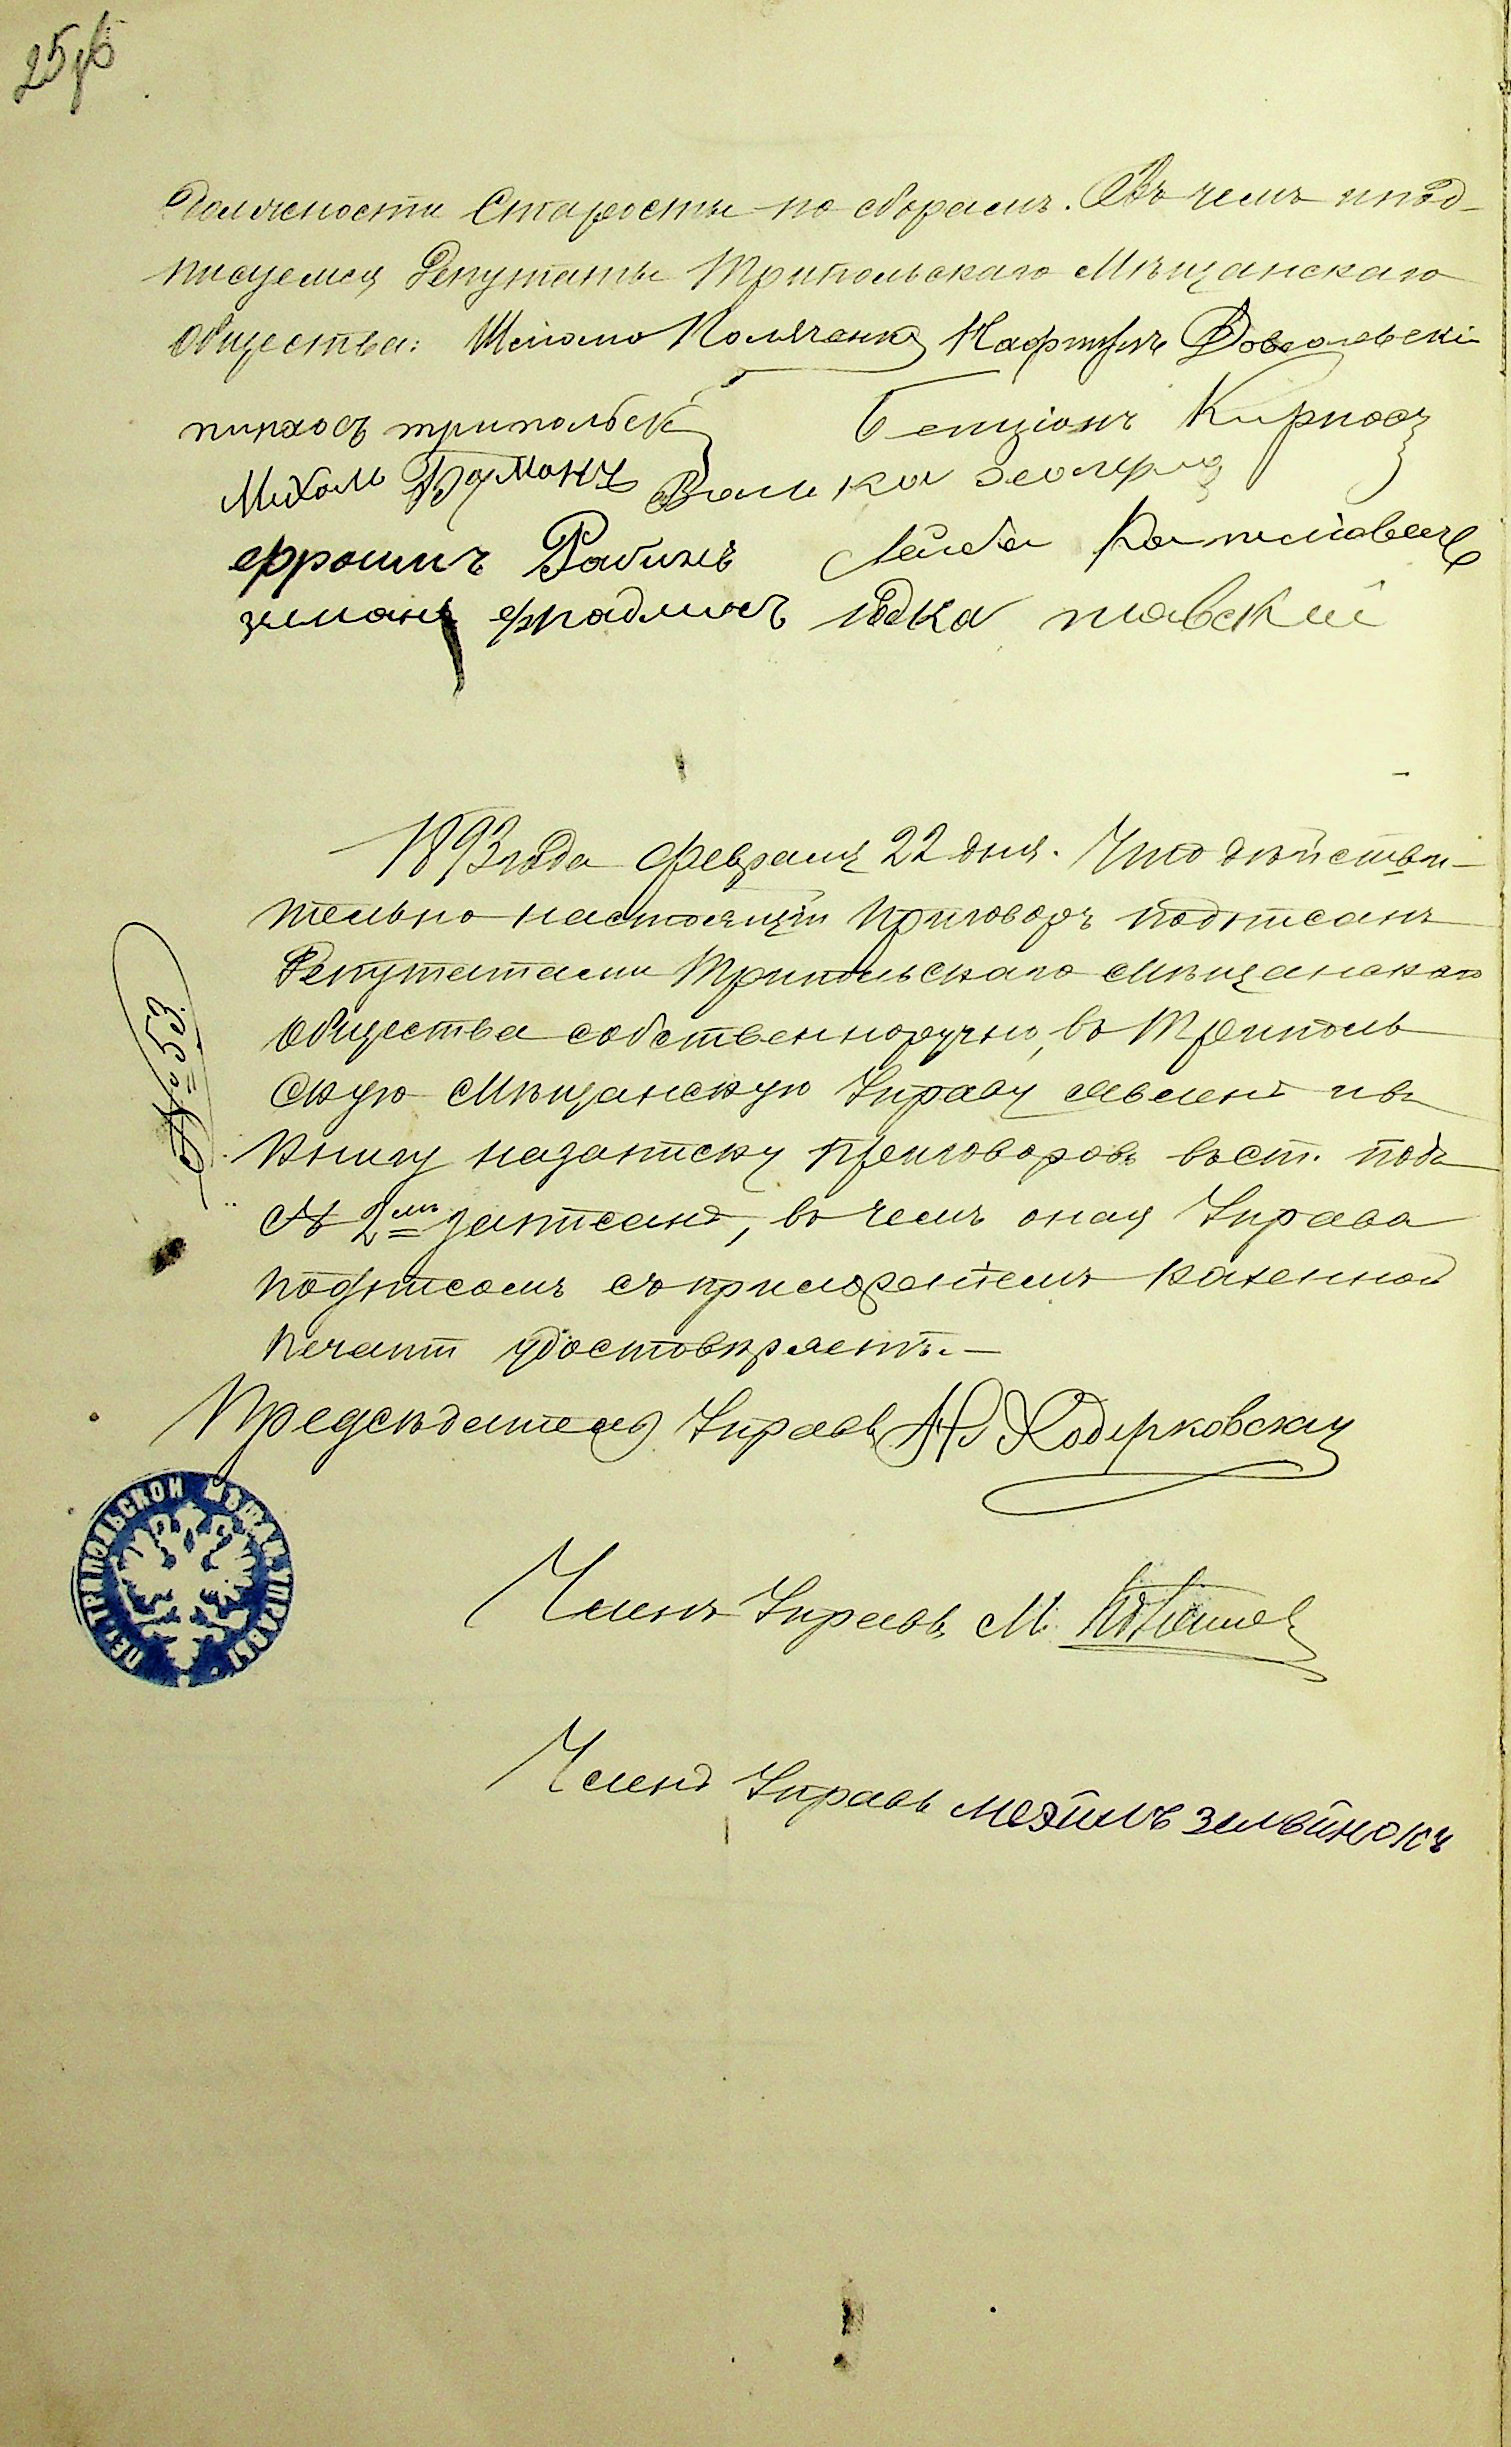 25об
должности Старосты по сборамъ. Въ чемъ и под-
писуемся Депутаты Трипольскаго Мѣщанскаго
Общества: Шлиомо Поляченко Нафтулъ Довголевскій
пинхосъ трипольск Бенціонъ Кирнос
Михель Бауманъ Волько
ефроимъ Рабинъ Лейба Копиловичъ
зиманъ фрадлинъ юдка павскій
1893 года февраля 22 дня. Что дѣйстви-
тельно настоящій приговоръ подписанъ
Депутатами Трипольскаго Мѣщанскаго
Общества собственноручно, въ Триполь
скую Мѣщанскую Управу явленъ и въ
Книгу на записку приговоровъ въ ст. подъ
№ 2мъ записанъ, въ чемъ оная Управа
подписомъ съ приложеніемъ казенной
печати удостовѣряетъ.—
№ 53.
Предсѣдатель Управы Н Ходорковскій
Членъ Управы М.
Членъ Управы
ПЕЧ. ТРИПОЛЬСКОЙ МѢЩАН. УПРАВЫ